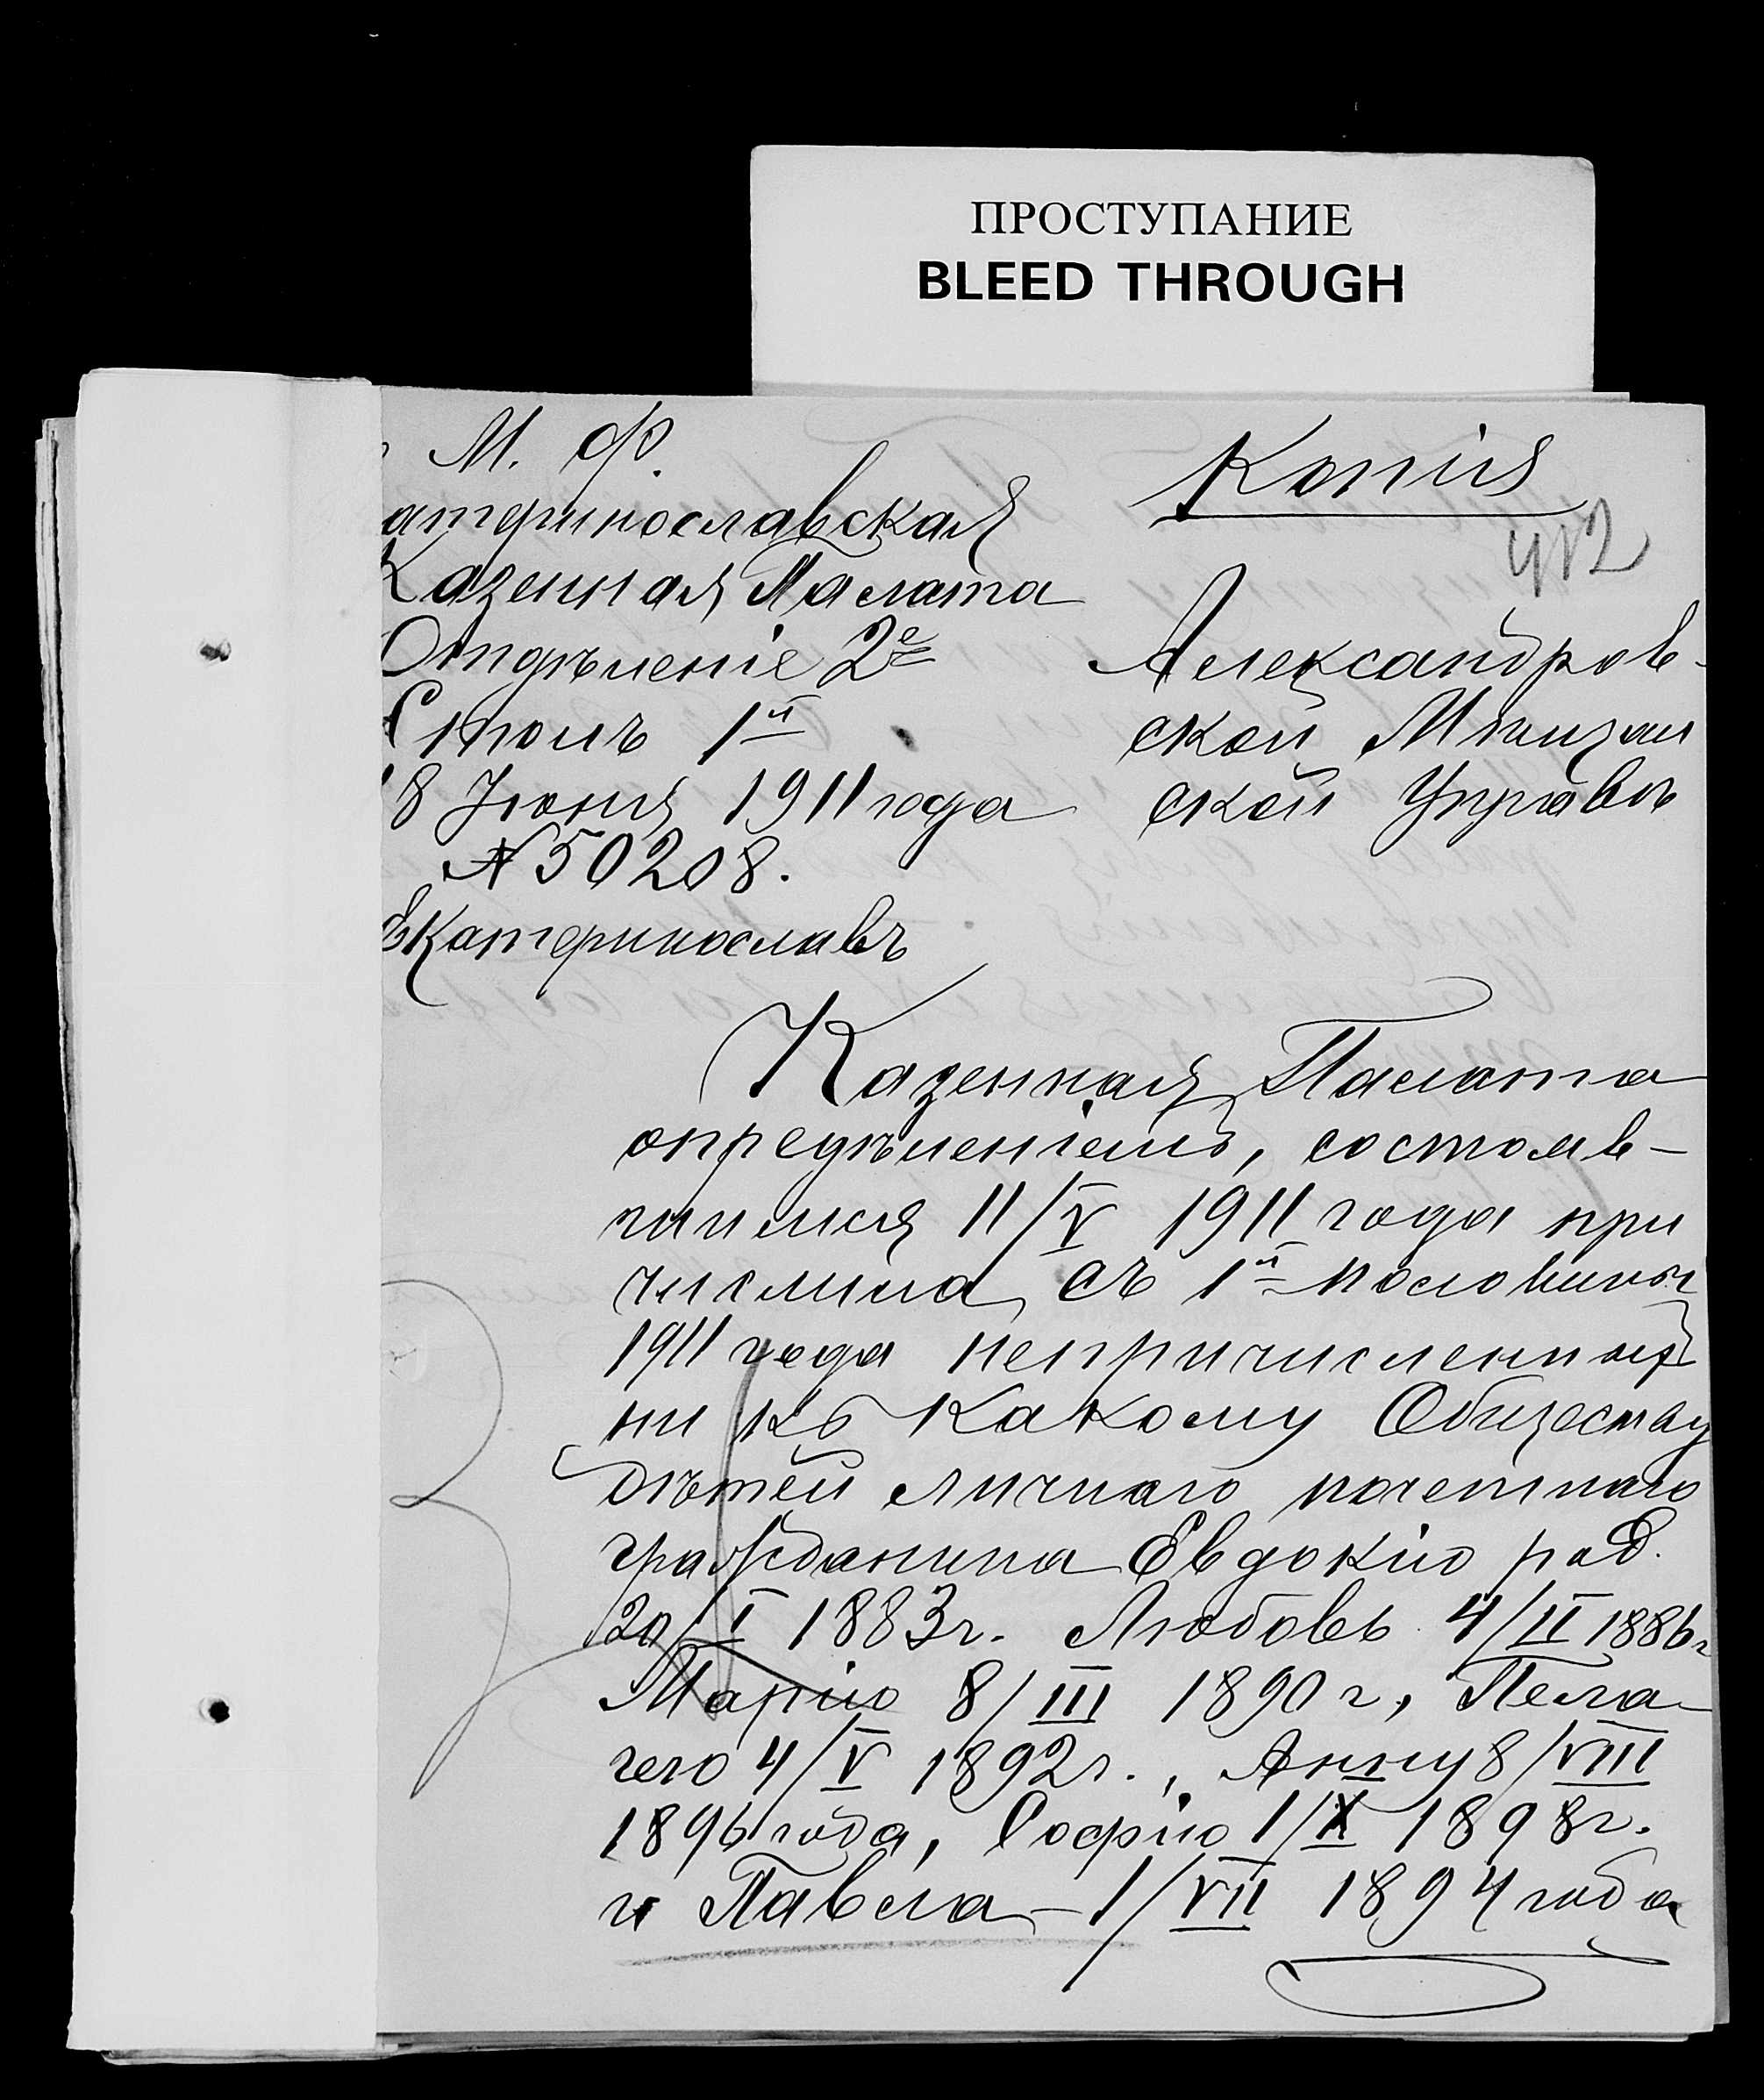 ПРОСТУПАНИЕ
BLEED THROUGH
М. Ф.
Копія
412
атеринославская
Казенная Палата
Отдѣленіе 2е
Столъ 1й
8 Іюня 1911 года
№ 50208.
Екатеринославъ
Александров-
ской Мѣщан
ской Управѣ
Казенная Палата
опредѣленіемъ, состояв-
шимся 11/V 1911 года при
числила съ 1й половины
1911 года непричисленныхъ
ни къ какому Обществу
дѣтей личнаго почетнаго
гражданина Евдокію род.
20/I 1883 г. Любовь 4/II 1886 г
Марію 8/III 1890 г, Пела-
гею 4/V 1892 г., Анну 8/VIII
1896 года, Софію 1/X 1898 г.
и Павла – 1/VII 1894 года